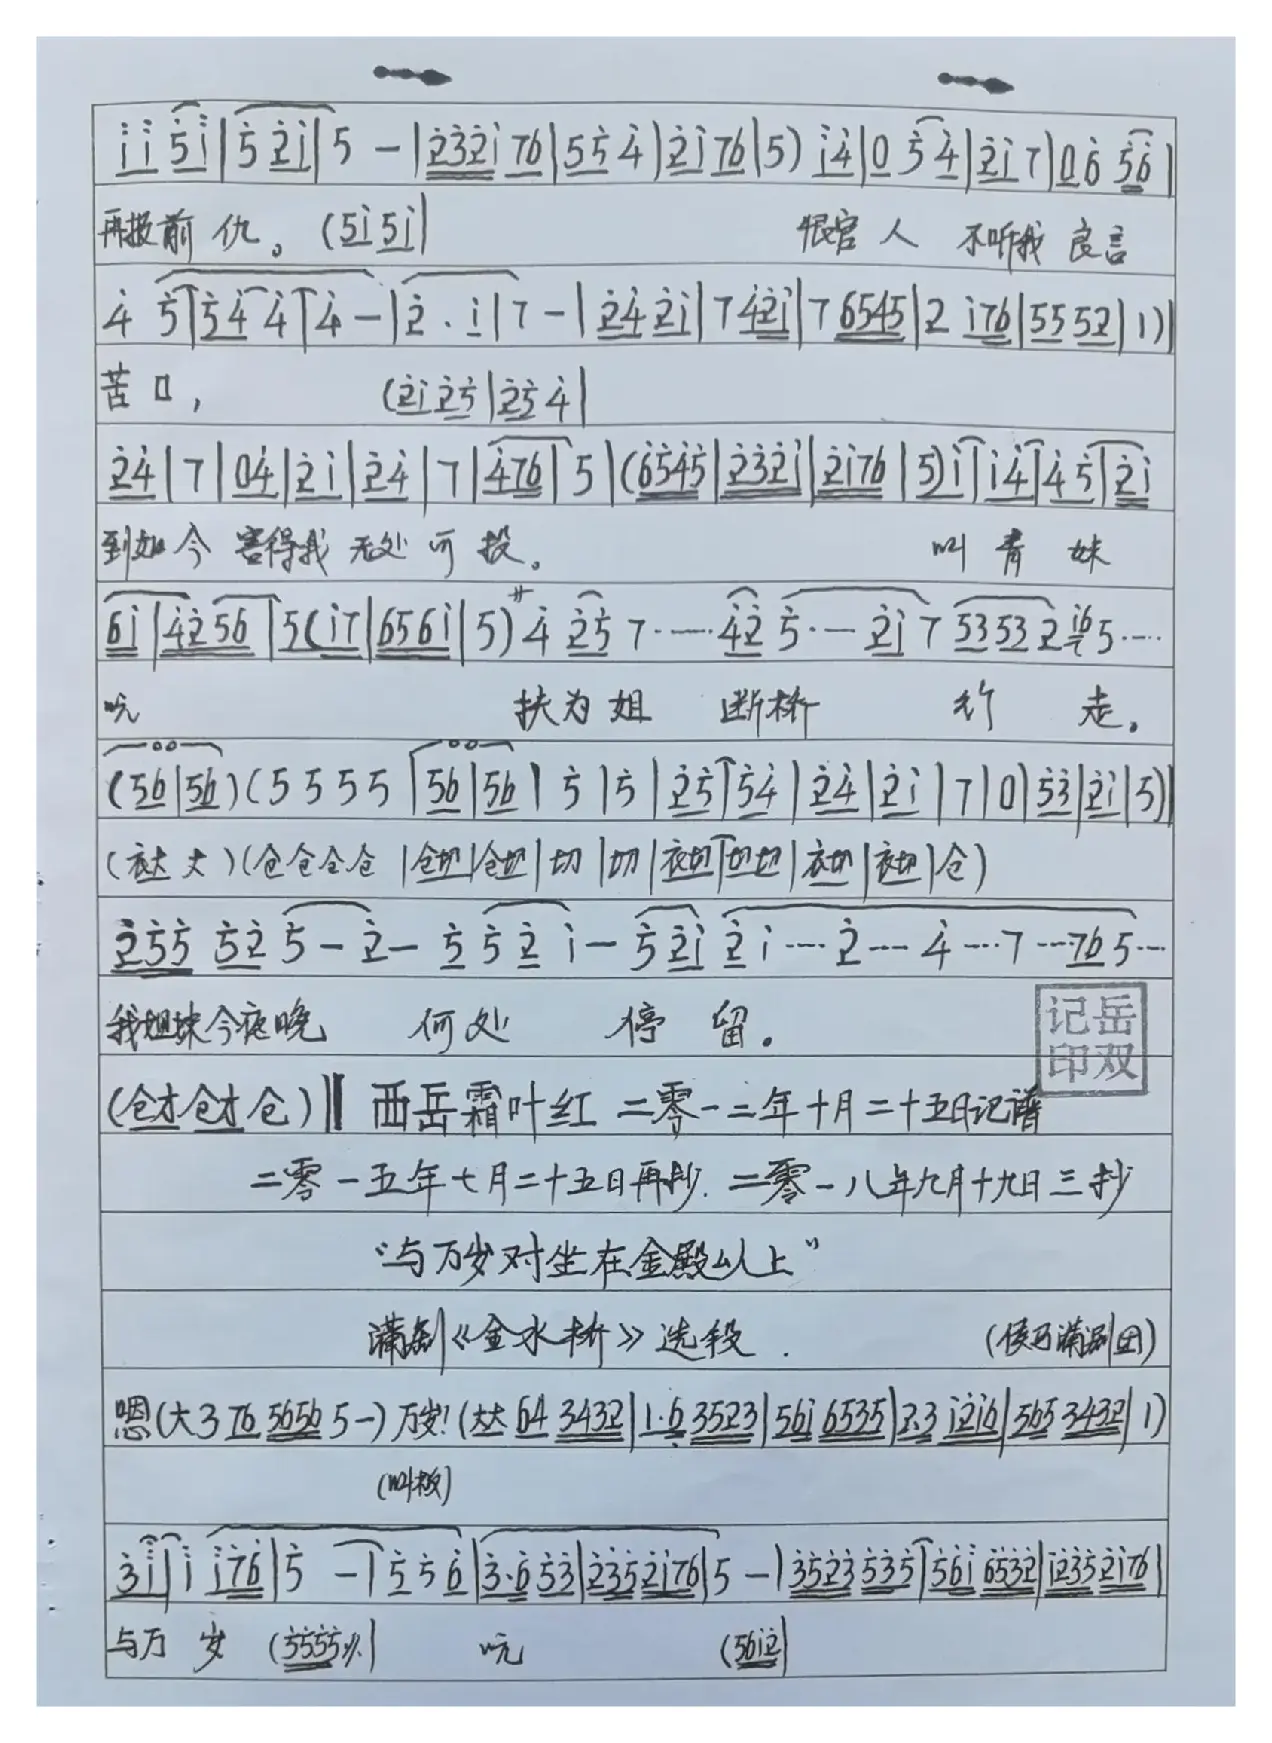 i̇ i̇ 5̇ i̇ | 5̇ 2̇ i̇ | 5 - | 2̇ 3̇ 2̇ i̇ 7 6 | 5 5 4̇ | 2̇ i̇ 7 6 | 5) i̇ 4̇ | 0 5̇ 4̇ | 2̇ i̇ 7 | 0 6̇ 5̇ 6̇ |
再报前仇。(5 i̇ 5 i̇ | 恨官人 不听我良言
4̇ 5̇ | 5̇ 4̇ 4̇ | 4̇ - | 2̇ . i̇ | 7 - | 2̇ 4̇ 2̇ i̇ | 7 4̇ 2̇ i̇ | 7 6 5 4 5 | 2 i̇ 7 6 | 5 5 5 2 | 1) |
苦口, (2̇ i̇ 2̇ 5̇ | 2̇ 5̇ 4̇ |
2̇ 4̇ | 7 | 0 4̇ | 2̇ i̇ | 2̇ 4̇ | 7 | 4̇ 7 6 | 5 | (6̇ 5̇ 4̇ 5̇ | 2̇ 3̇ 2̇ i̇ | 2̇ i̇ 7 6 | 5) i̇ | i̇ 4̇ | 4̇ 5̇ | 2̇ i̇
到如今害得我无处可投。 叫青妹
6 i̇ | 4̇ 2̇ 5 6 | 5 (i̇ 7 | 6 5 6 i̇ | 5) 4̇ 2̇ 5̇ 7 ····· 4̇ 2̇ 5̇ · — 2̇ i̇ 7 5 3 5 3 2 5 ····
吭 扶为姐 断桥 行 走。
(5 6 | 5 6) (5 5 5 5 | 5 6 | 5 6 | 5̇ | 5̇ | 2̇ 5̇ | 5̇ 4̇ | 2̇ 4̇ | 2̇ i̇ | 7 | 0 | 5̇ 3̇ | 2̇ i̇ | 5) |
(仓仓仓仓 | 仓切 | 仓切 | 切 | 切 | 衣切 | 切切 | 衣切 | 衣切 | 仓)
2̇ 5̇ 5̇ 5̇ 2̇ 5̇ - 2̇ - 5̇ 5̇ 2̇ i̇ - 5̇ 2̇ i̇ 2̇ i̇ ···· 2̇ ···· 4̇ ···· 7 ···· 7 6 5 ····
我姐妹今夜晚 何处 停留。
记岳印双
(仓才仓才仓) ‖ 西岳霜叶红 二零一二年十月二十五日记谱
二零一五年七月二十五日再抄. 二零一八年九月十九日三抄
“与万岁对坐在金殿以上”
蒲剧《金水桥》选段. (侯马蒲剧团)
嗯(大 3 7 6 5 6 5 6 5 -) 万岁!(大大 6 4 3 4 3 2 | 1 · 6̣ 3 5 2 3 | 5 6 i̇ 6 5 3 5 | 2 · 3 i̇ 2̇ i̇ 6 | 5 6 5 3 4 3 2 | 1)
(叫板)
3̇ i̇ | i̇ i̇ 7 6 | 5̇ - | 5̇ 5 6̇ | 3̇ · 6̇ 5̇ 3̇ | 2̇ 3̇ 5̇ 2̇ i̇ 7 6 | 5 - | 3 5 2 3 5 3 5 | 5 6 i̇ 6 5 3 2 | i̇ 2̇ 3̇ 5̇ 2̇ i̇ 7 6 |
与万岁 (5̇ 5̇ 5̇ 5̇ | 吭 (5 6 i̇ 2̇ |